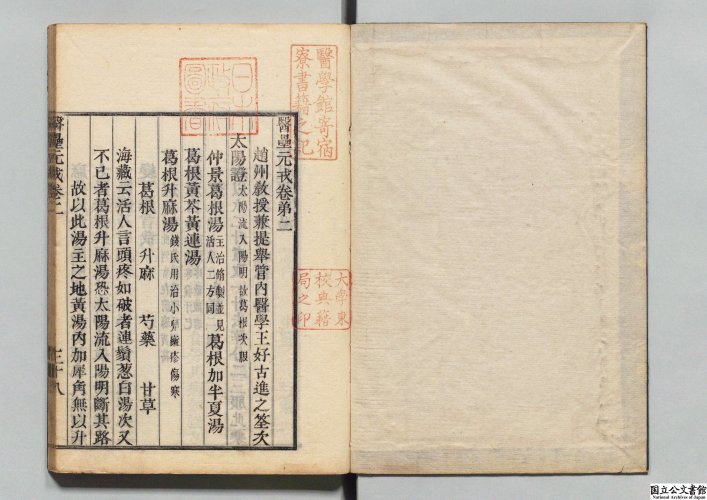 醫學館寄宿
寮書籍之記
大学東
校典籍
局之印
日本
政府
圖書
醫壘元戎卷第二
趙州教授兼提舉管內醫學王好古進之筌次
太陽證 太陽流入陽明故葛根次
仲景葛根湯 主治 製並見 活人二方同 葛根加半夏湯
葛根黃芩黃連湯
葛根升麻湯 錢氏用治小 疹傷寒
葛根 升麻 芍藥 甘草
海藏云活人言頭疼如破者連鬚葱白湯次又
不已者葛根升麻湯恐太陽流入陽明斷其路
故以此湯主之地黃湯內加犀角無以升
醫壘元戎卷二 三十八
国立公文書館
National Archives of Japan